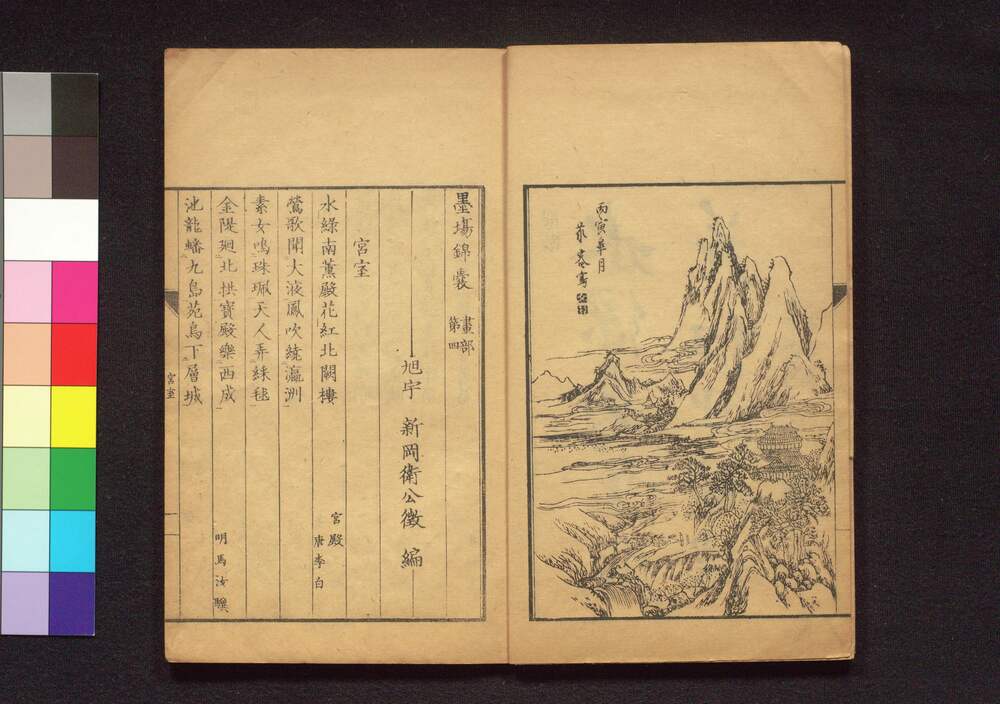 丙寅皐月
墨場錦囊 畫部 第四
旭宇 新岡衛公徵 編
宮室
宮殿
水綠南薰殿花紅北闕樓 唐李白
鶯歌聞大液鳳吹繞瀛洲
素女鳴珠珮天人弄綵毬
金隄廻北拱寶殿樂西成 明馬汝驥
池龍蟠九島苑鳥下層城
宮室